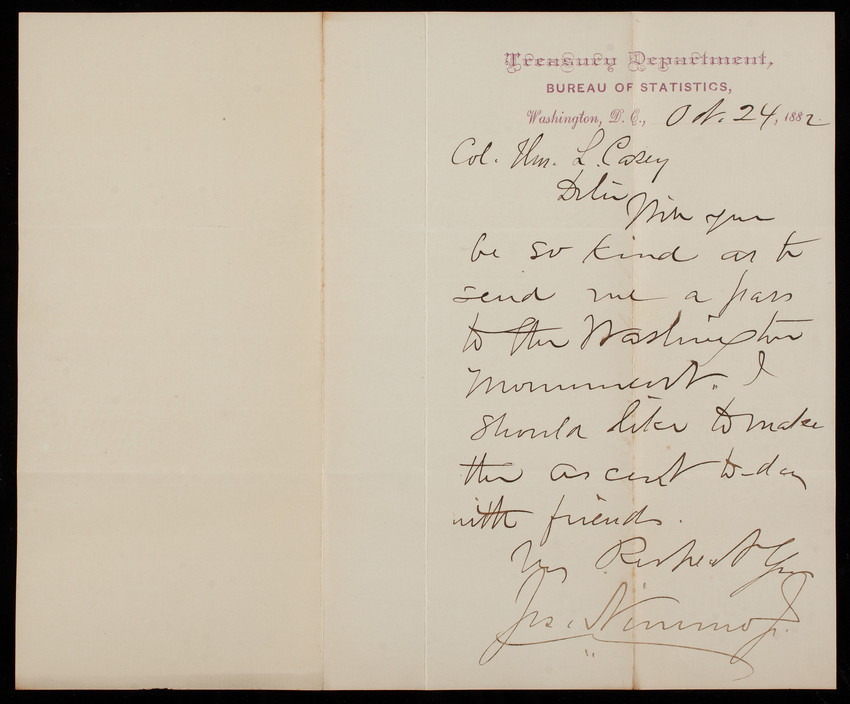 Treasury Department,
BUREAU OF STATISTICS,
Washington, D. C., Oct. 24, 1882.
Col. Thos. L. Casey
Dr Sir
Will you
be so kind as to
send me a pass
to the Washington
Monument. I
should like to make
the ascent to-day
with friends.
Very Respectfully
Jos. Nimmo Jr.